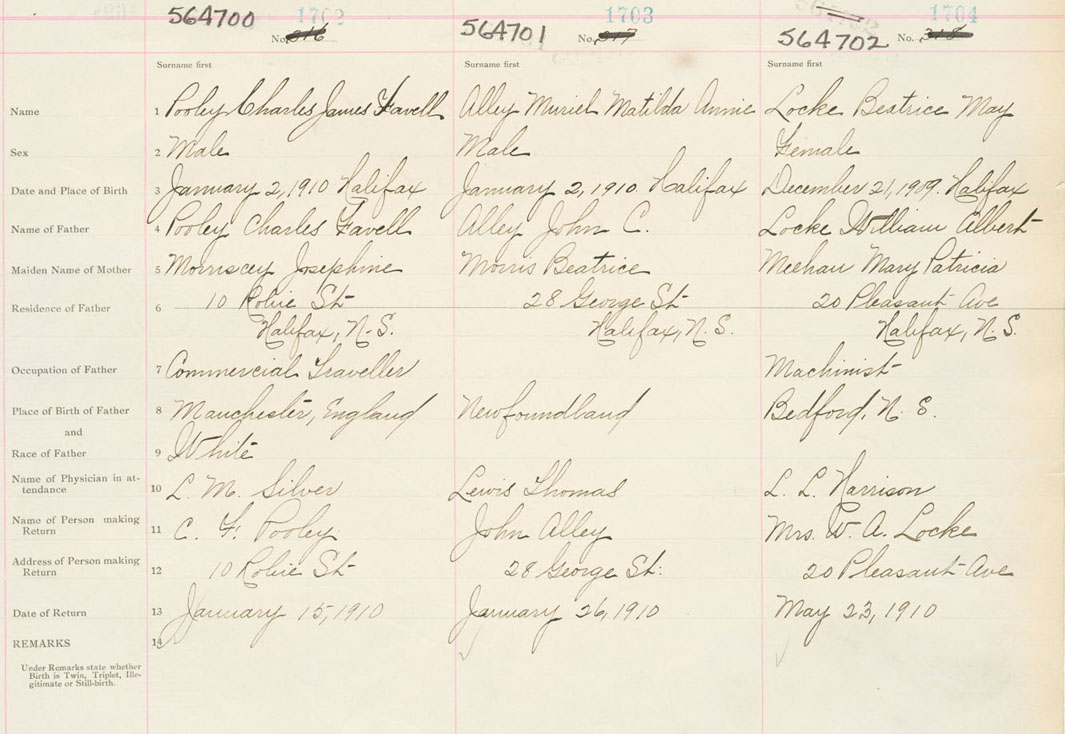 564700 1702 564701 1703 564702 1704
No. 316 No. 317 No. 318
Surname first Surname first Surname first
Name 1 Pooley Charles James Favell Alley Muriel Matilda Annie Locke Beatrice May
Sex 2 Male Male Female
Date and Place of Birth 3 January 2, 1910 Halifax January 2, 1910 Halifax December 21, 1909. Halifax
Name of Father 4 Pooley Charles Favell Alley John C. Locke William Albert
Maiden Name of Mother 5 Morriscey Josephine Morris Beatrice Meehan Mary Patricia
Residence of Father 6 10 Robie St 28 George St 20 Pleasant Ave
Halifax, N.S. Halifax, N.S. Halifax, N.S.
Occupation of Father 7 Commercial Traveller Machinist
Place of Birth of Father 8 Manchester, England Newfoundland Bedford, N.S.
and
Race of Father 9 White
Name of Physician in at-
tendance 10 L. M. Silver Lewis Thomas L. L. Harrison
Name of Person making
Return 11 C. F. Pooley John Alley Mrs. W. A. Locke
Address of Person making
Return 12 10 Robie St 28 George St. 20 Pleasant Ave
Date of Return 13 January 15, 1910 January 26, 1910 May 23, 1910
REMARKS 14
Under Remarks state whether
Birth is Twin, Triplet, Ille-
gitimate or Still-birth.